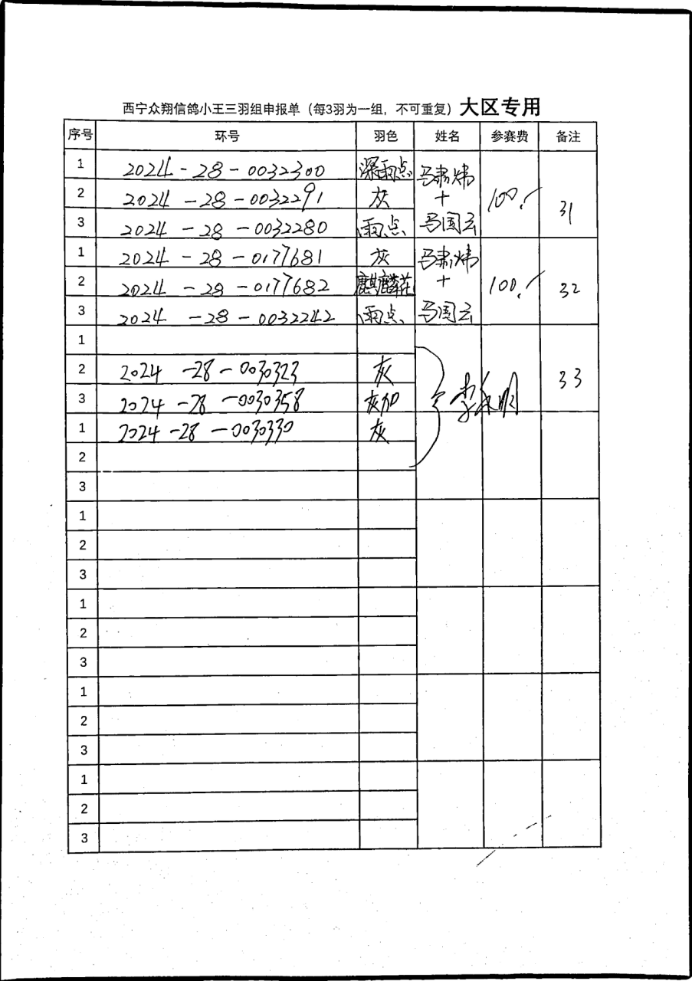 西宁众翔信鸽小王三羽组申报单（每3羽为一组，不可重复）大区专用
序号 环号 羽色 姓名 参赛费 备注
1 2024-28-0032300 深雨点 马肃炜 100. 31
2 2024-28-0032291 灰 +
3 2024-28-0032280 雨点 马国云
1 2024-28-0177681 灰 马肃炜 100. 32
2 2024-28-0177682 麒麟花 +
3 2024-28-0032242 雨点 马国云
1
2 2024-28-0030323 灰 33
3 2024-28-0030358 灰
1 2024-28-0030330 灰
2
3
1
2
3
1
2
3
1
2
3
1
2
3